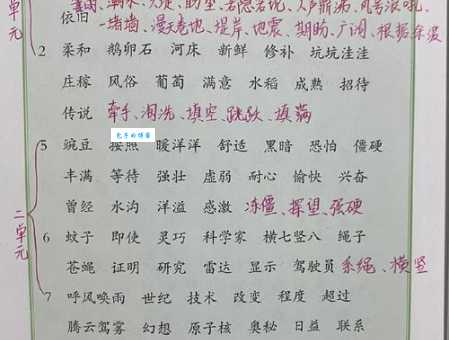 依旧
一堵墙、漫天卷地、堤岸、地震、期盼、广阔、根据、余波
2 柔和 鹅卵石 河床 新鲜 修补 坑坑洼洼
庄稼 风俗 葡萄 满意 水稻 成熟 招待
传说 牵手、淘洗、填空、跳跃、填满
包子的博客
5 豌豆 按照 暖洋洋 舒适 黑暗 恐怕 僵硬
丰满 等待 强壮 虚弱 耐心 愉快 兴奋
曾经 水沟 洋溢 感激 冻僵、探望、强硬
二单元
6 蚊子 即使 灵巧 科学家 横七竖八 绳子
苍蝇 证明 研究 雷达 显示 驾驶员 系绳、横竖
7 呼风唤雨 世纪 技术 改变 程度 超过
腾云驾雾 幻想 原子核 奥秘 日益 联系